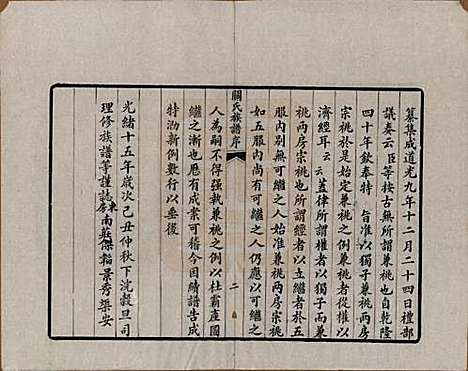 纂集成道光九年十二月二十四日禮部
議奏云臣等按古無所謂兼祧必自乾隆
四十年欽奉特旨准以獨子兼祧兩房
宗祧於是始定兼祧之例兼祧以
濟經耳云云蓋律所謂權者以獨子而兼
祧兩房宗祧也所謂經者以立繼者於五
服內別無可繼之人始准兼祧兩房宗祧
如五服內尚有可繼之人仍應以可繼之
關氏族譜序
二
人為嗣不得強執兼祧之例以杜霸產圖
繼之漸也應有成案可稽今因續譜告成
特泐新例數行以垂後
光緒十五年歲次己丑仲秋下浣穀旦司
理修族譜等謹誌東南房莊傑韜景秀榘安